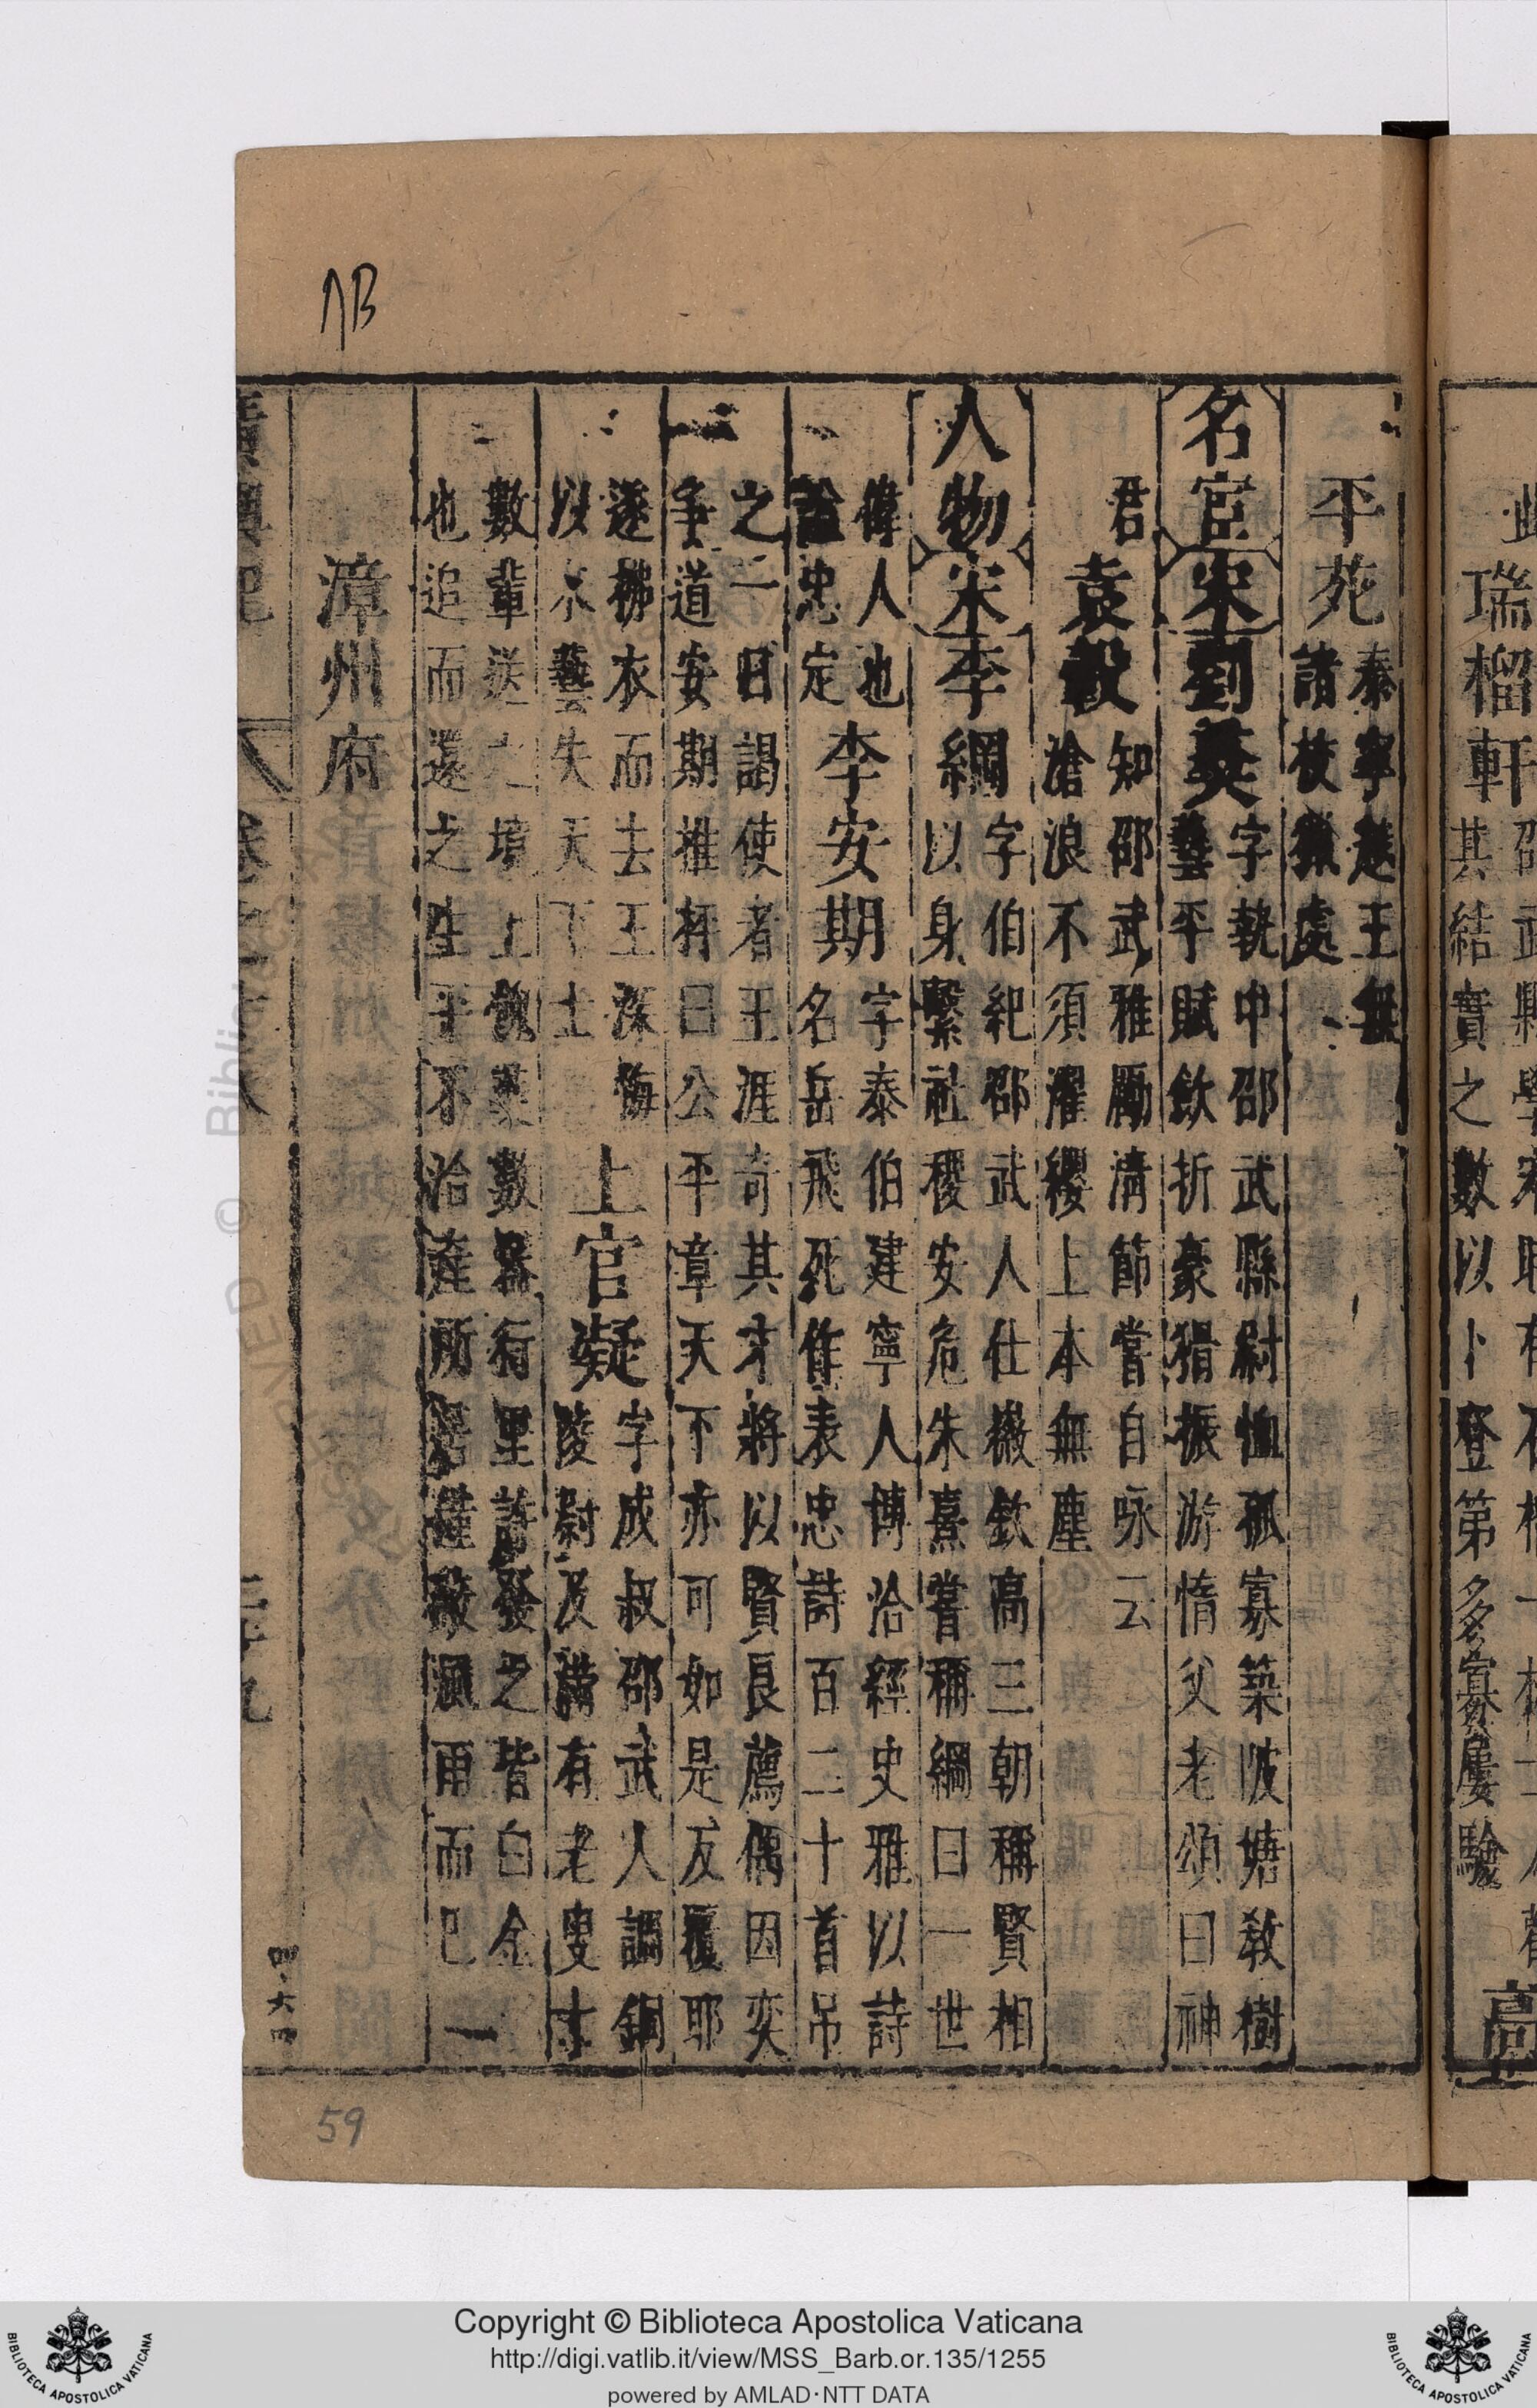 此
瑞榴軒
其結實之數以卜登第多寡屢驗
平苑 秦寧越王無
諸校獵處
名宦 宋 劉 字執中邵武縣尉恤孤寡築陂塘教樹
藝平賦歛折豪猾振游惰父老頌曰神
君
袁轂 知邵武雅勵清節嘗自咏云
滄浪不須濯纓上本無塵
人物 宋 李綱 字伯紀邵武人仕徽欽高三朝稱賢相
以身繫社稷安危朱熹嘗稱綱曰一世
偉人也
諡忠定
李安期 字泰伯建寧人博洽經史雅以詩
名岳飛死作表忠詩百二十首吊
之一日謁使者王涯奇其才將以賢良薦偶因奕
爭道安期推枰曰公平章天下亦可如是反覆耶
遂拂衣而去王深悔
以不藝失天下士
上官凝 字成叔邵武人調銅
陵尉及滿有老叟
數輩送之境上餽藥數器行里許發之皆白金
也追而還之生平不治產所居僅蔽風雨而已
漳州府
四六四
ΛB
59
Copyright © Biblioteca Apostolica Vaticana
http://digi.vatlib.it/view/MSS_Barb.or.135/1255
powered by AMLAD·NTT DATA
BIBLIOTECA APOSTOLICA VATICANA
BIBLIOTECA APOSTOLICA VATICANA